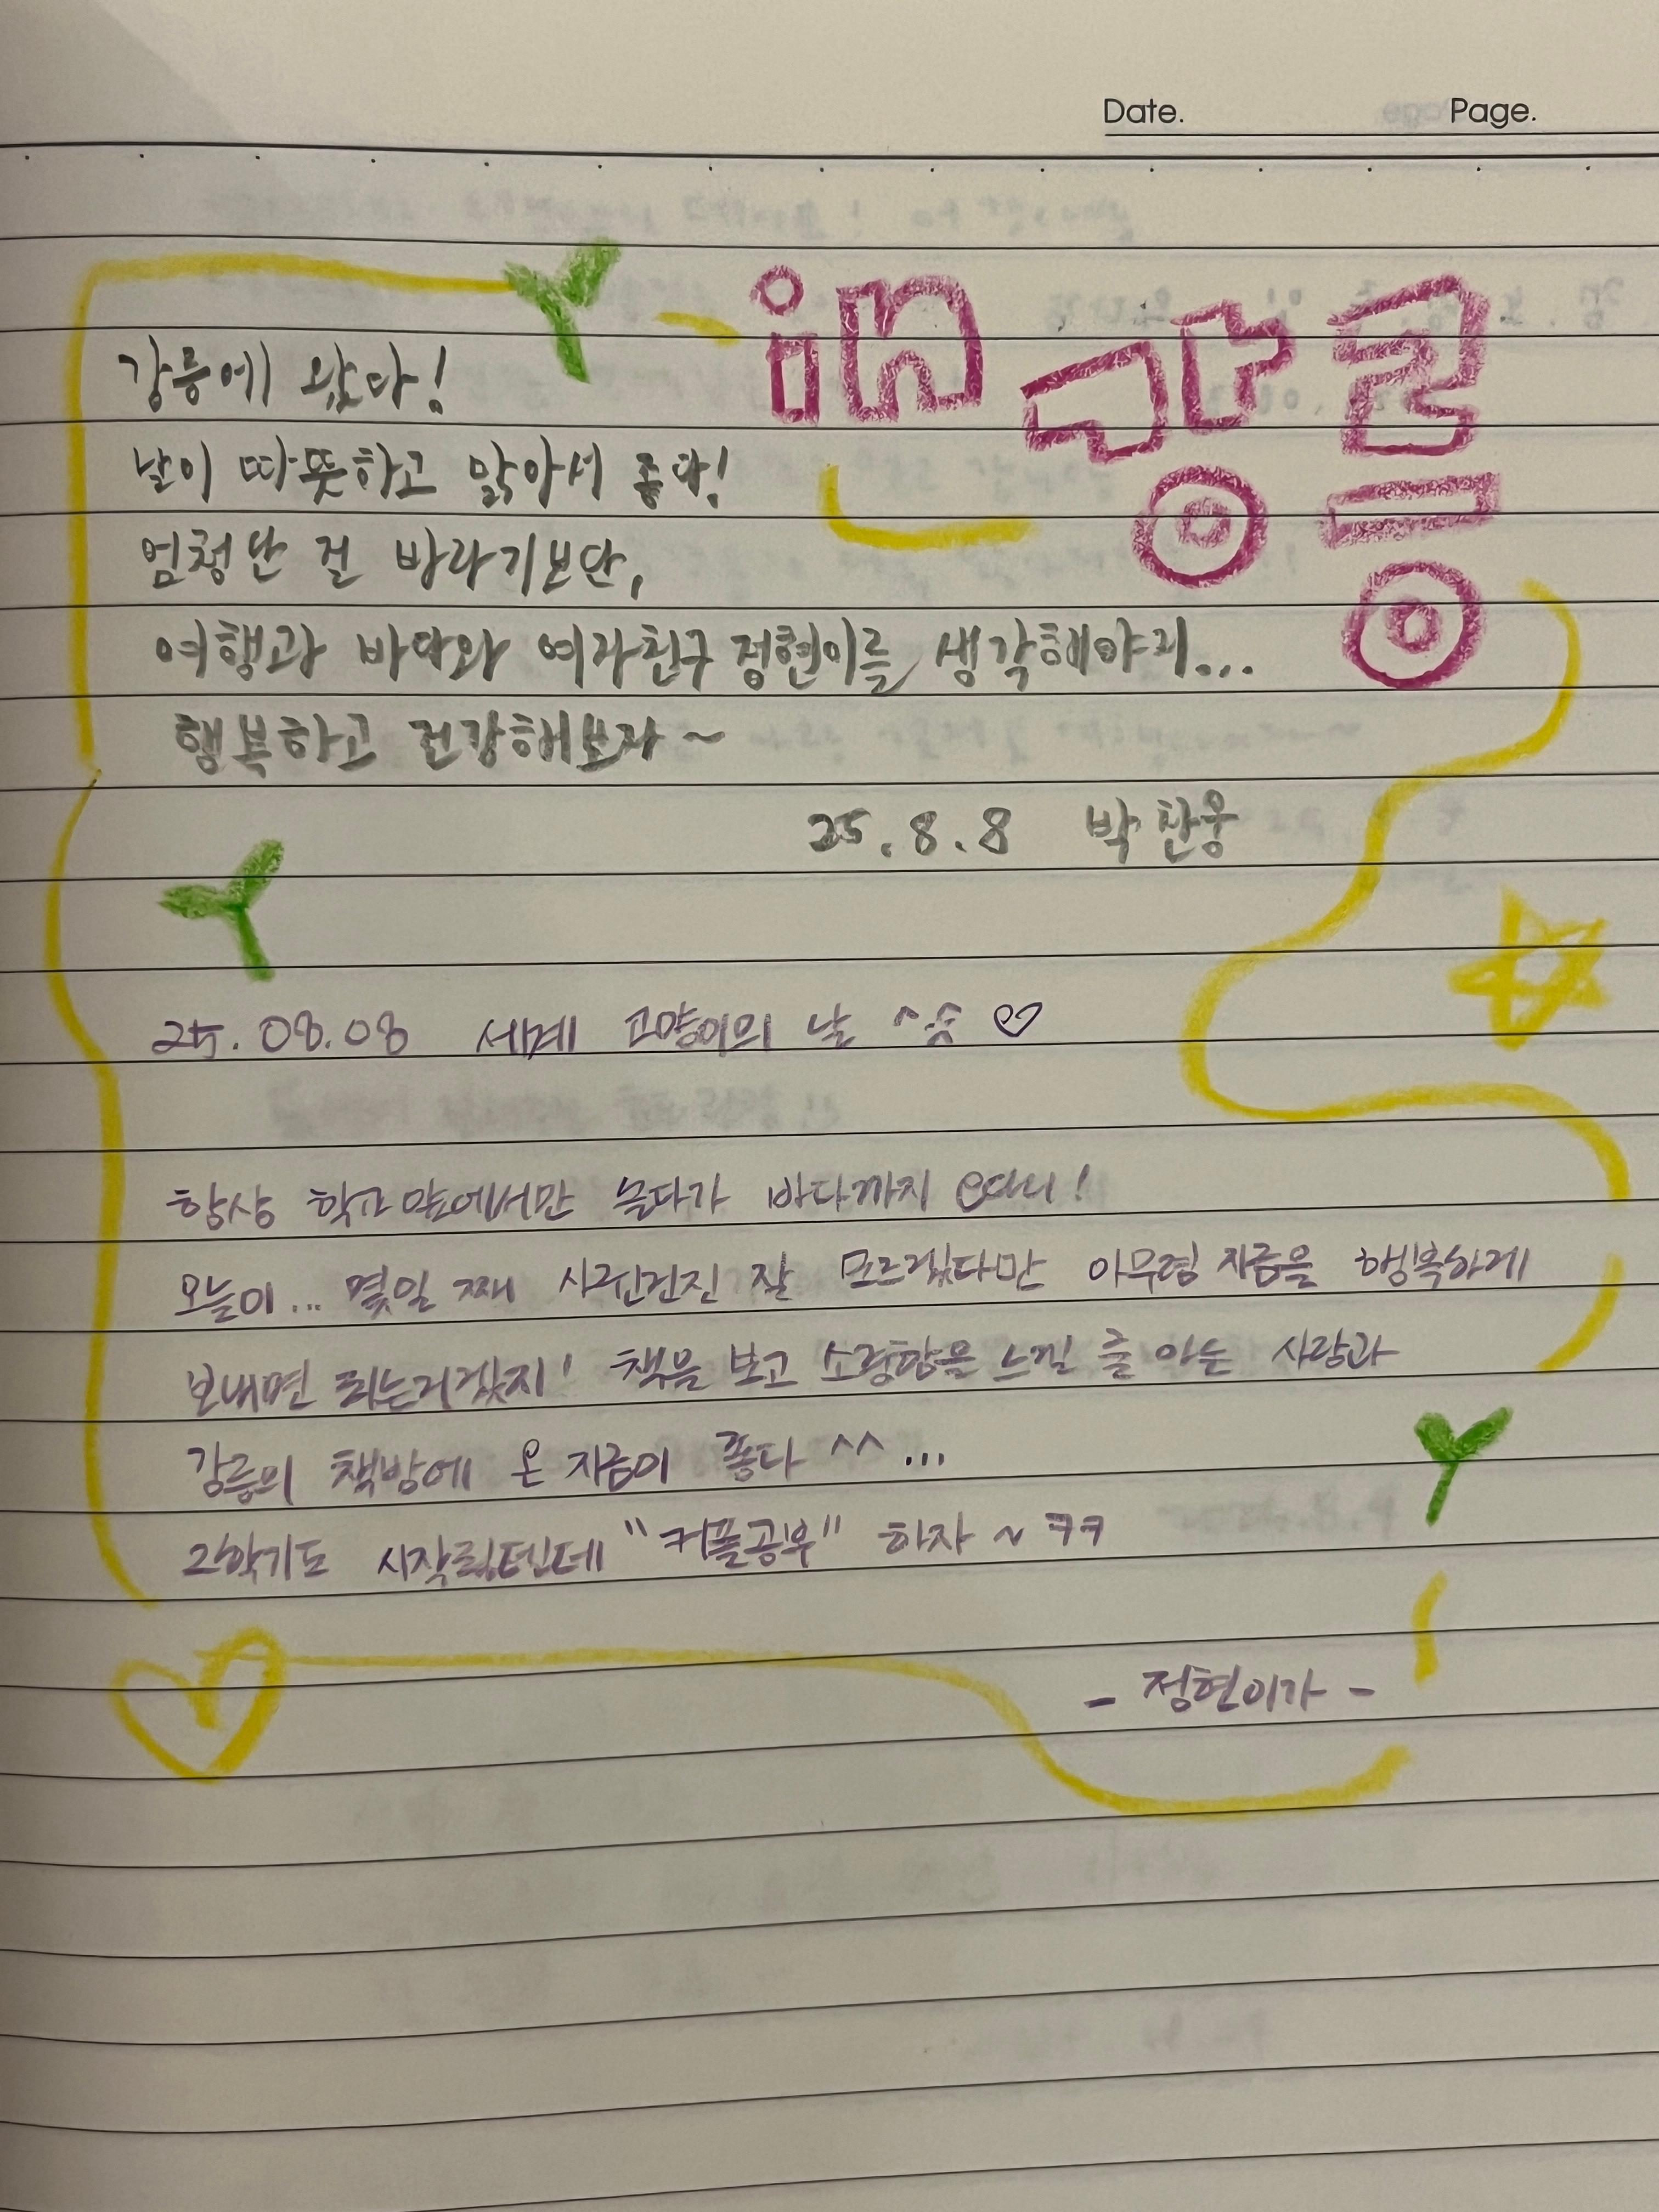 Date. Page.
in 강릉
강릉에 왔다!
날이 따뜻하고 맑아서 좋다!
엄청난 걸 바라기보단,
여행과 바다와 여자친구 정현이를 생각해야지...
행복하고 건강해보자~
25.8.8 박찬웅
25.08.08 세계 고양이의 날 ♡
항상 학교 앞에서만 놀다가 바다까지 오다니!
오늘이... 몇일 째 사귄건진 잘 모르겠다만 아무렴 지금을 행복하게
보내면 되는거겠지! 책을 보고 소중함을 느낄 줄 아는 사람과
강릉의 책방에 온 지금이 좋다 ^^...
2학기도 시작될텐데 "커플공부" 하자~ ㅋㅋ
- 정현이가 -